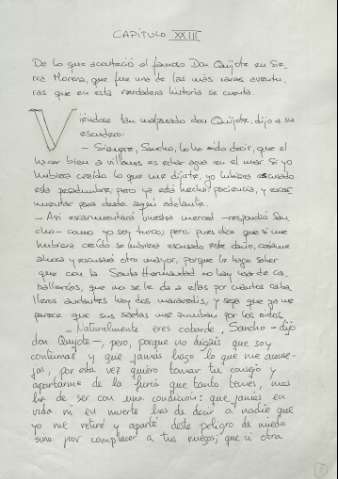 CAPITULO XXIII
De lo que aconteció al famoso Don Quijote en Sie
rra Morena, que fue una de las más raras aventu
ras que en esta verdadera historia se cuenta.
Viéndose tan malparado don Quijote, dijo a su
escudero:
- Siempre, Sancho, lo he oído decir, que el
hacer bien a villanos es echar agua en el mar. Si yo
hubiera creído lo que me dijiste, yo hubiera escusado
esta pesadumbre; pero ya está hecho: paciencia, y escar
mentar para desde aquí adelante.
- Así escarmentará vuestra merced -respondió San
cho- como yo soy turco; pero, pues dice que si me
hubiera creído se hubiera escusado este daño, créame
ahora y escusará otro mayor; porque le hago saber
que con la Santa Hermandad no hay usar de ca
ballerías, que no se le da a ellas por cuantos caba
lleros andantes hay dos maravedís, y sepa que ya me
parece que sus saetas me zumban por los oídos.
- Naturalmente eres cobarde, Sancho -dijo
don Quijote-, pero, porque no digas que soy
contumaz y que jamás hago lo que me aconse-
jas, por esta vez quiero tomar tu consejo y
apartarme de la furia que tanto temes, mas
ha de ser con una condición: que jamás en
vida ni en muerte has de decir a nadie que
yo me retiré y aparté deste peligro de miedo
sino por complacer a tus ruegos; que si otra